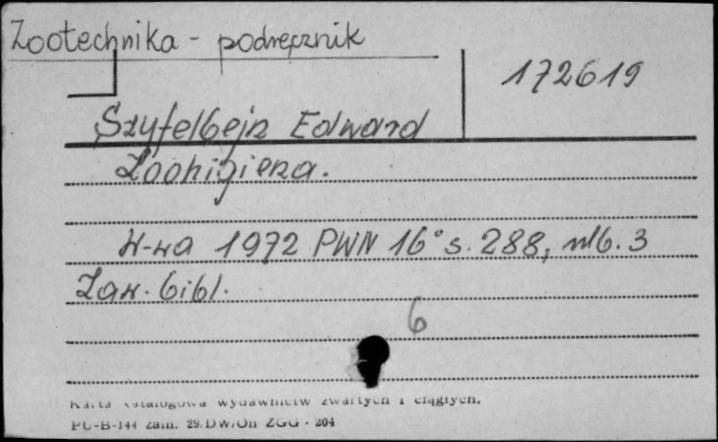 Zootechnika - podręcznik
172619
Szyfelbejn Edward
Zoohigiena.
W-wa 1972 PWN 16° s. 288, nlb. 3
Zaw. bibl.
6
Karta katalogowa wydawnictw zwartych i ciągłych.
PU-B-144 zam. 29.DW/On ZGG - 204